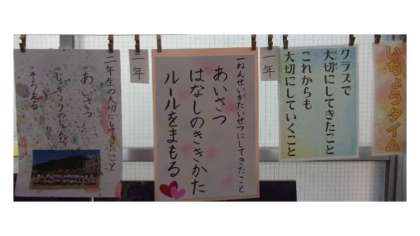 いちょうタイム
クラスで
大切にしてきたこと
これからも
大切にしていくこと
一年
一ねんせいがたいせつにしてきたこと
あいさつ
はなしのききかた
ルールをまもる
一年
二年生の大切にしてきたこと
あいさつ